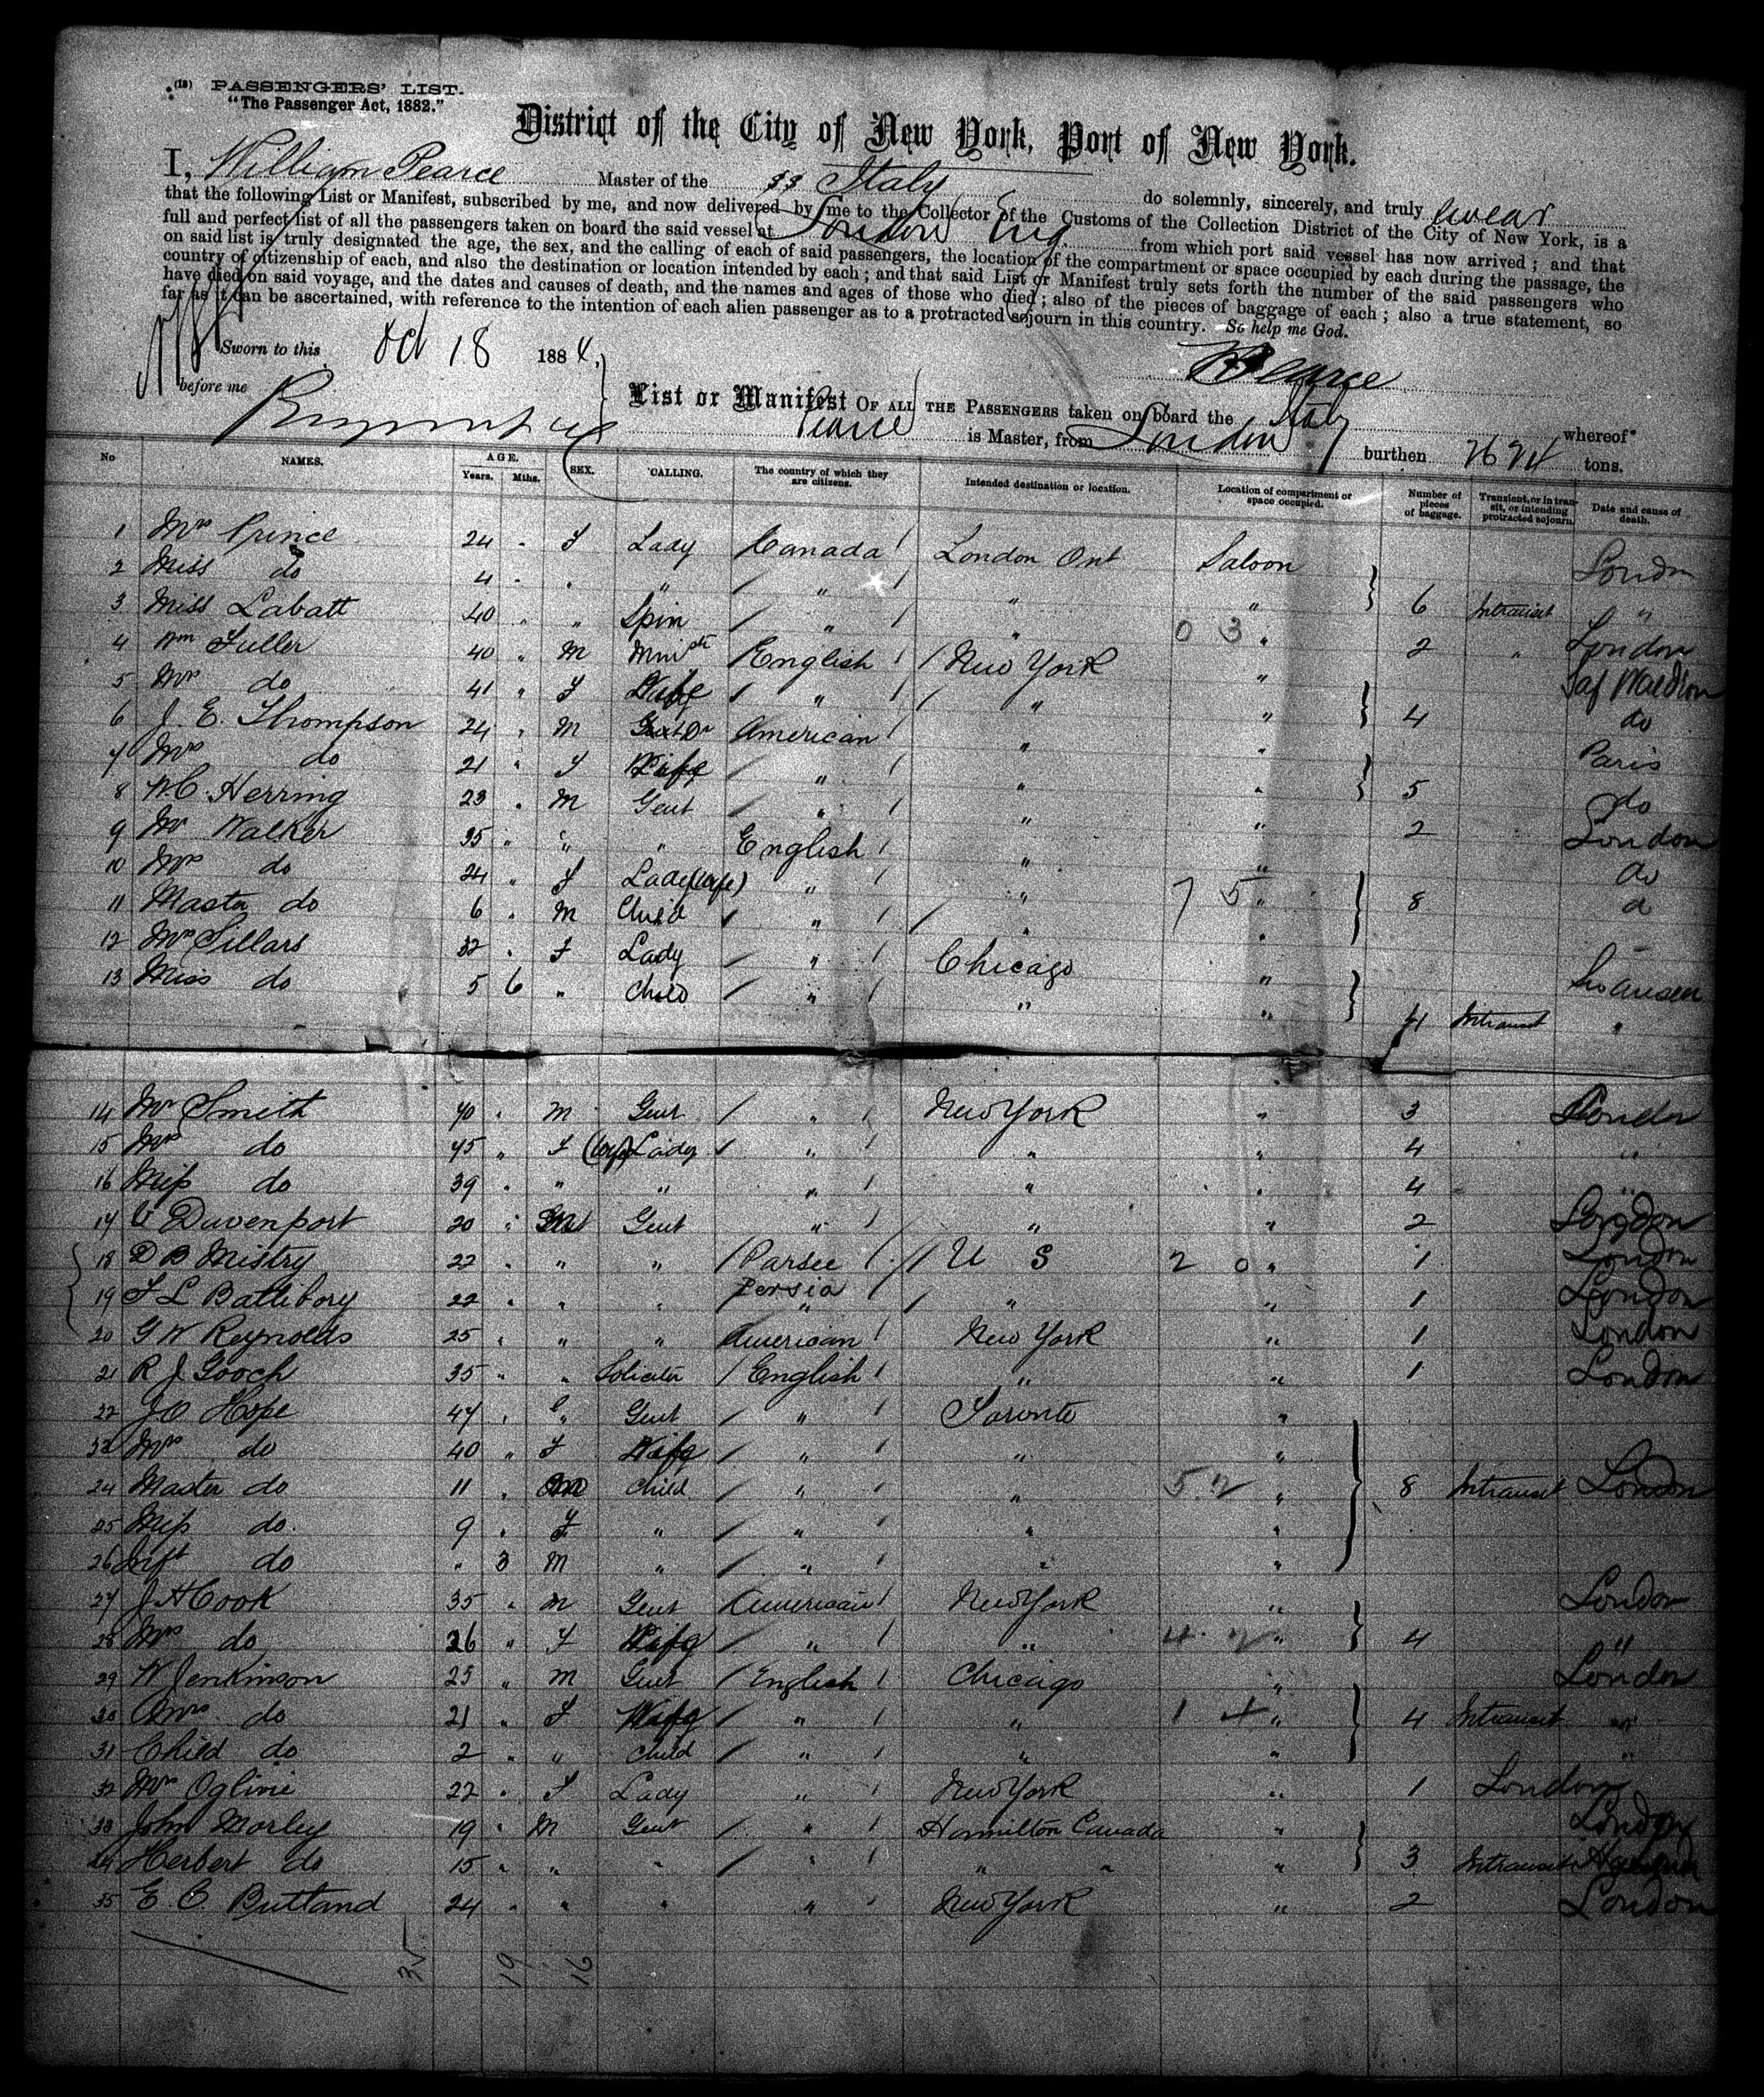 (18) PASSENGERS' LIST.
"The Passenger Act, 1882."
District of the City of New York, Port of New York.
I, William Pearce Master of the SS Italy do solemnly, sincerely, and truly swear
that the following List or Manifest, subscribed by me, and now delivered by me to the Collector of the Customs of the Collection District of the City of New York, is a
full and perfect list of all the passengers taken on board the said vessel at London Eng. from which port said vessel has now arrived; and that
on said list is truly designated the age, the sex, and the calling of each of said passengers, the location of the compartment or space occupied by each during the passage, the
country of citizenship of each, and also the destination or location intended by each; and that said List or Manifest truly sets forth the number of the said passengers who
have died on said voyage, and the dates and causes of death, and the names and ages of those who died; also of the pieces of baggage of each; also a true statement, so
far as it can be ascertained, with reference to the intention of each alien passenger as to a protracted sojourn in this country. So help me God.
Sworn to this Oct 18 1884,
before me
WPearce
List or Manifest OF ALL THE PASSENGERS taken on board the Italy whereof
Pearce is Master, from London burthen tons.
No NAMES. AGE. Years. Mths. SEX. CALLING. The country of which they are citizens. Intended destination or location. Location of compartment or space occupied. Number of pieces of baggage. Transient, or in transit, or intending protracted sojourn. Date and cause of death.
1 Mrs Prince 24 - F Lady Canada London Ont Saloon London
2 Miss do 4 - " " " " " 6 Intransit "
3 Miss Labatt 40 " " Spin " " 0 3 " 2 " London
4 Wm Fuller 40 " M English New York " Saf Waldron
5 Mrs do 41 " F Wife " " " 4 do
6 J. E. Thompson 24 " M American " " Paris
7 Mrs do 21 " F Wife " " " 5 do
8 W.C. Herring 23 " M Gent " " " 2 London
9 Mr Walker 35 " " " English " " do
10 Mrs do 24 " F Lady (wife) " " 7 5 " 8 do
11 Master do 6 " M Child " " "
12 Mrs Sillars 32 " F Lady " Chicago " Swansea
13 Miss do 5 6 " Child " " " 4 Intransit "
14 Mr Smith 70 " M Gent " New York " 3 London
15 Mrs do 45 " F (wife) Lady " " " 4 "
16 Miss do 39 " " " " " " 4 "
17 C Davenport 20 " M Gent " " " 2 London
18 D B Mistry 22 " " " Parsee U S 2 0 " 1 London
19 F L Battibory 22 " " " Persia " " " 1 London
20 G W Reynolds 25 " " " American New York " 1 London
21 R J Gooch 35 " " Soliciter English " " 1 London
22 J O Hope 47 " " Gent " Toronto "
23 Mrs do 40 " F Wife " " "
24 Master do 11 " M Child " " 5 2 " 8 Intransit London
25 Miss do 9 " F " " " "
26 Inft do " 3 M " " " "
27 J H Cook 35 " M Gent American New York " London
28 Mrs do 26 " F Wife " " 4 2 " 4 "
29 W Jenkinson 23 " M Gent English Chicago " London
30 Mrs do 21 " F Wife " " 1 4 " 4 Intransit "
31 Child do 2 " " Child " " " "
32 Mrs Oglivie 22 " F Lady " New York " 1 London
33 John Morley 19 " M Gent " Hamilton Canada " London
34 Herbert do 15 " " " " " " " 3 Intransit
35 E. C. Buttand 24 " " " " New York " 2 London
35 19 16